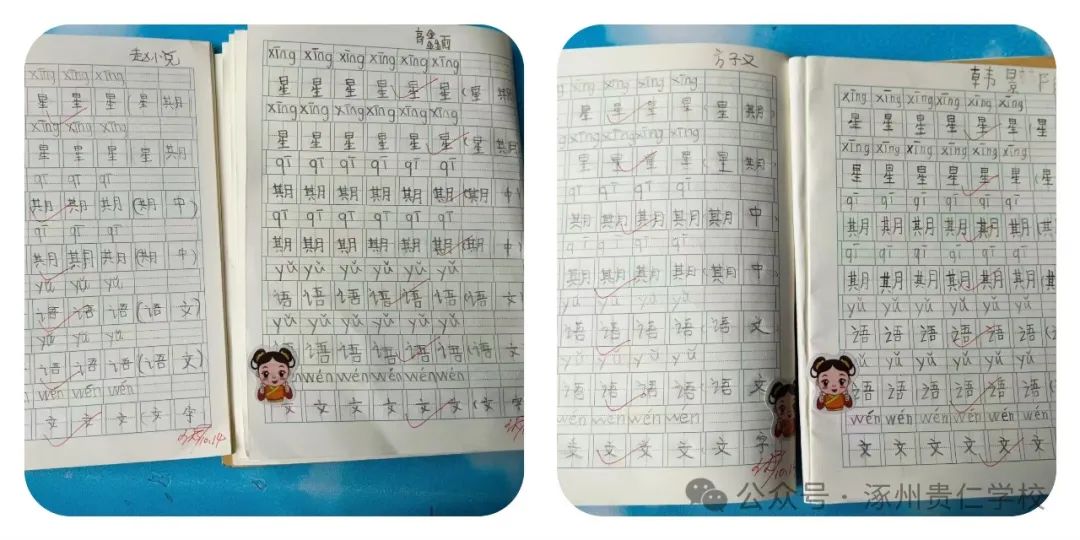 赵小悦
xīng xīng xīng
星 星 星 (星 期
xīng xīng xīng
星 星 星 (星 期
qī qī qī
期 期 期 (期 中)
qī qī qī
期 期 期 (期 中)
yǔ yǔ yǔ
语 语 语 (语 文)
yǔ yǔ yǔ
语 语 语 (语 文)
wén wén wén
文 文 文 (文 字)
10.14
xīng xīng xīng xīng xīng xīng
星 星 星 星 星 星 (星 期
xīng xīng xīng xīng xīng xīng
星 星 星 星 星 星 (星 期
qī qī qī qī qī qī
期 期 期 期 期 期 (期 中)
qī qī qī qī qī qī
期 期 期 期 期 期 (期 中)
yǔ yǔ yǔ yǔ yǔ yǔ
语 语 语 语 语 语 (语 文
yǔ yǔ yǔ yǔ yǔ yǔ
语 语 语 语 语 语 (语 文
wén wén wén wén wén
文 文 文 文 文 文 (文 字
10.14
方子义
xīng xīng xīng xīng
星 星 星 星 (星 期
xīng xīng xīng xīng
星 星 星 星 (星 期
qī qī qī qī
期 期 期 期 (期 中
qī qī qī qī
期 期 期 期 (期 中
yǔ yǔ yǔ yǔ
语 语 语 语 (语 文
yǔ yǔ yǔ yǔ
语 语 语 语 (语 文
wén wén wén wén
文 文 文 文 (文 字
10.14
韩景
xīng xīng xīng xīng xīng xīng
星 星 星 星 星 星 (星
xīng xīng xīng xīng xīng xīng
星 星 星 星 星 星 (星
qī qī qī qī qī qī
期 期 期 期 期 期 (期
qī qī qī qī qī qī
期 期 期 期 期 期 (期
yǔ yǔ yǔ yǔ yǔ yǔ
语 语 语 语 语 语 (
yǔ yǔ yǔ yǔ yǔ yǔ
语 语 语 语 语 语 (
wén wén wén wén wén wén
文 文 文 文 文 文
公众号 · 涿州贵仁学校